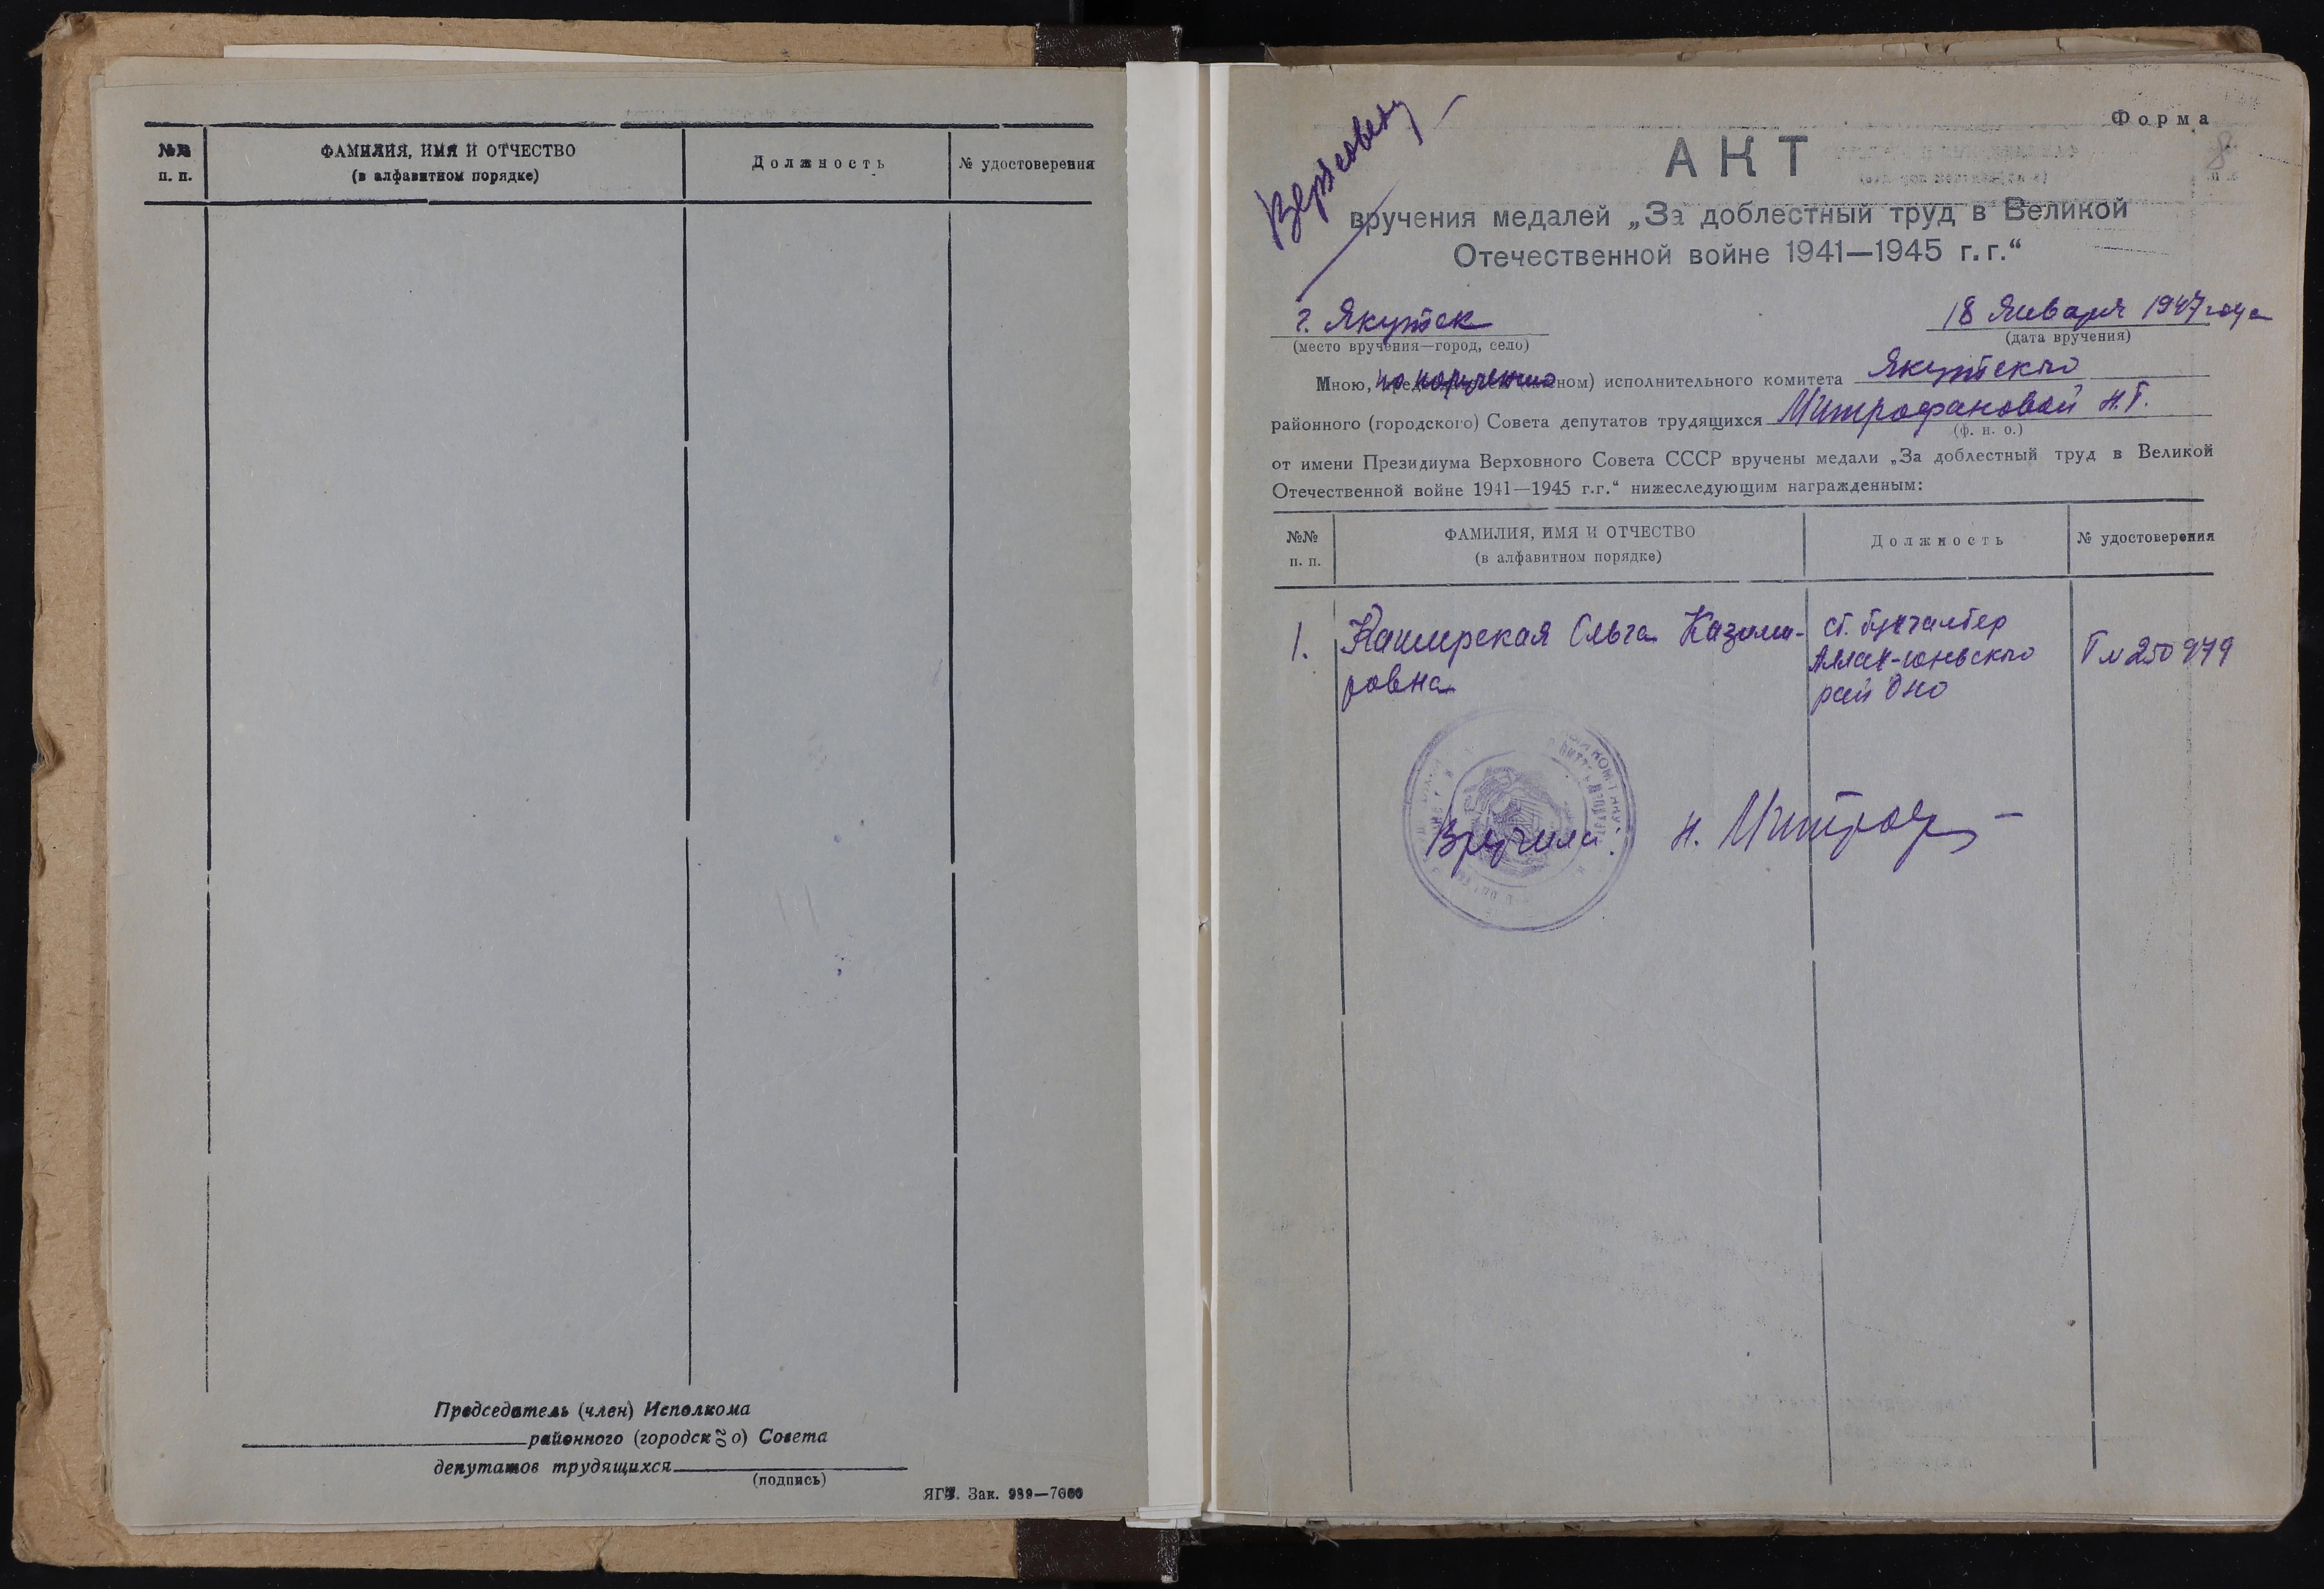 №№
п. п.
ФАМИЛИЯ, ИМЯ И ОТЧЕСТВО
(в алфавитном порядке)
Должность
№ удостоверения
Председатель (член) Исполкома
районного (городского) Совета
депутатов трудящихся
(подпись)
ЯГТ. Зак. 989—7000
Форма
8
АКТ
вручения медалей „За доблестный труд в Великой
Отечественной войне 1941—1945 г.г.“
г. Якутск
18 Января 1947 года
(место вручения—город, село)
(дата вручения)
Мною, по поручению ном) исполнительного комитета Якутского
районного (городского) Совета депутатов трудящихся Митрофановой Н.Г.
(ф. и. о.)
от имени Президиума Верховного Совета СССР вручены медали „За доблестный труд в Великой
Отечественной войне 1941—1945 г.г.“ нижеследующим награжденным:
№№
п. п.
ФАМИЛИЯ, ИМЯ И ОТЧЕСТВО
(в алфавитном порядке)
Должность
№ удостоверения
1.
Каширская Ольга Казими-
ровна
ст. бухгалтер
Аллах-юньского
рай Оно
Г № 250979
Вручила: Н. Митроф